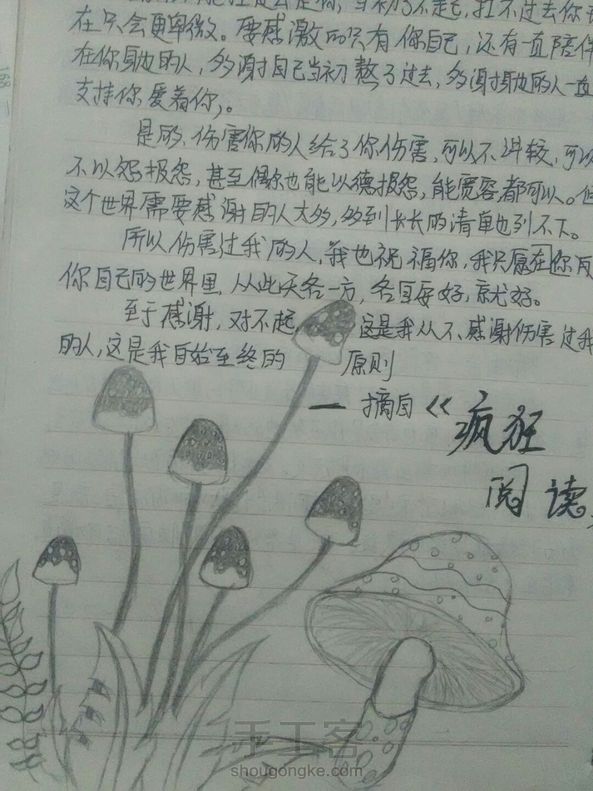 在只会更卑微。要感激的只有你自己，还有一直陪伴
在你身边的人，多谢自己当初熬了过去，多谢身边的人一直
支持你爱着你。
是的，伤害你的人给了你伤害，可以不计较，可以
不以怨报怨，甚至偶尔也能以德报怨，能宽容都可以。但
这个世界需要感谢的人太多，多到长长的清单也列不下。
所以伤害过我的人，我也祝福你，我只愿在你
你自己的世界里，从此天各一方，各自安好，就好。
至于感谢，对不起，这是我从不感谢伤害过我
的人，这是我自始至终的原则
— 摘自《疯狂
阅读
手工客
shougongke.com